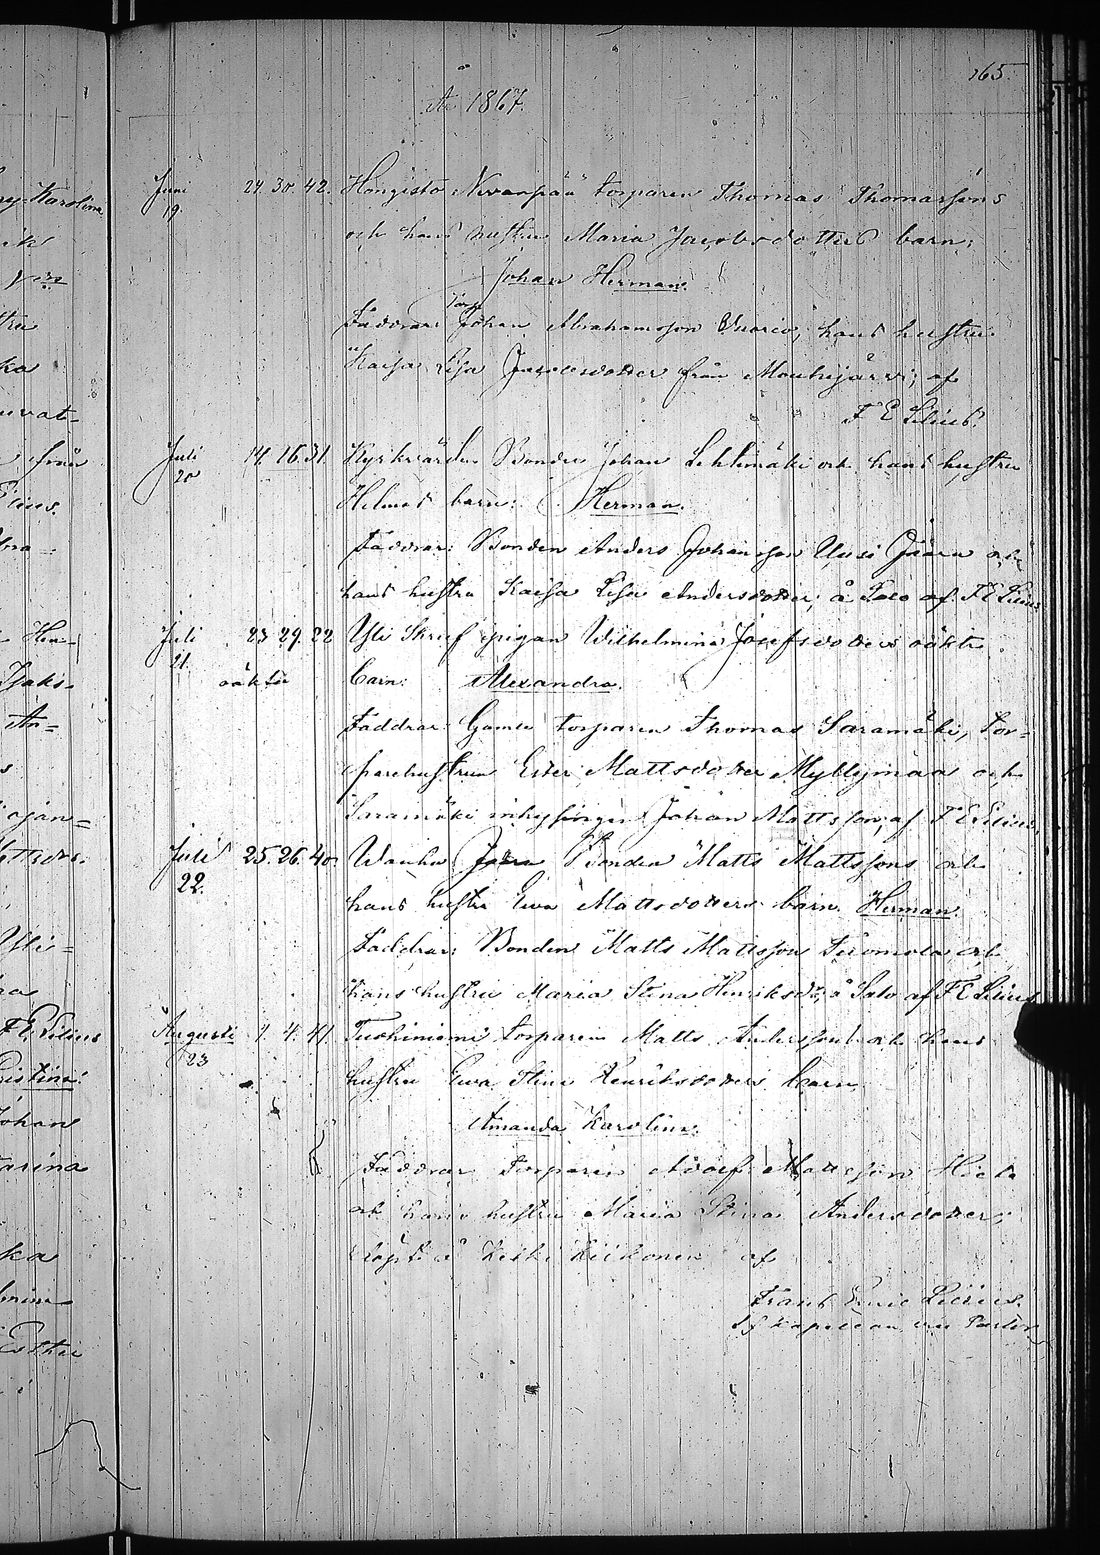 165
År 1867.
Juni 24. 30. 42. Hongisto torparen Thomas Thomassons
19. och hans hustru Maria Jacobsdotters barn;
Johan Herman.
Faddrar: Johan Abrahamsson Vuorio, hans hustru
Kaisa Lisa Jacobsdotter från Mouhijärvi; af
F E Lilius.
Juli 14. 16. 31. Kyrkvärden Bonden Johan Lehtimäki och hans hustru
20 Helmas barn: Herman.
Faddrar: Bonden Anders Johansson Uusi Jaara och
hans hustru Kaisa Lisa Andersdotter; å af F E Lilius
Juli 23 29. 22 Yli Skruf pigan Wilhelmina Josefsdotters oäkta
21. oäkta barn: Alexandra.
Faddrar: Gamle torparen Thomas Saramäki, Tor=
parehustrun Ester Mattsdotter Myllymaa och
Saramäki inhysingen Johan Mattsson, af F E Lilius
Juli 25. 26. 40. Wanha Jaara Bonden Matts Mattssons och
22. hans hustru Ewa Mattsdotters barn Herman.
Faddrar: Bonden Matts Mattsson Tuomola och
hans hustru Maria Stina Henriksdr, å Salo af F E Lilius
Augusti 1. 4. 41. Tuohiniemi torparen Matts Anderssons och hans
23 hustru Ewa Stina Henriksdotters barn
Amanda Karolina.
Faddrar Torparen Adolf Mattsson
och hans hustru Maria Stina Andersdotter;
döpt å Keski Kiikonen af
Frans Emil Lilius.